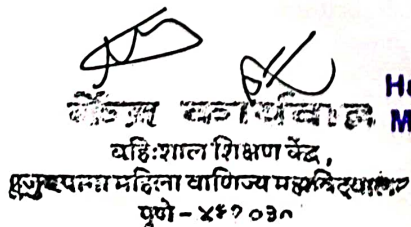 केंद्र कार्यवाह
बहिःशाल शिक्षण केंद्र,
महिला वाणिज्य महाविद्यालय
पुणे - ४११०३०